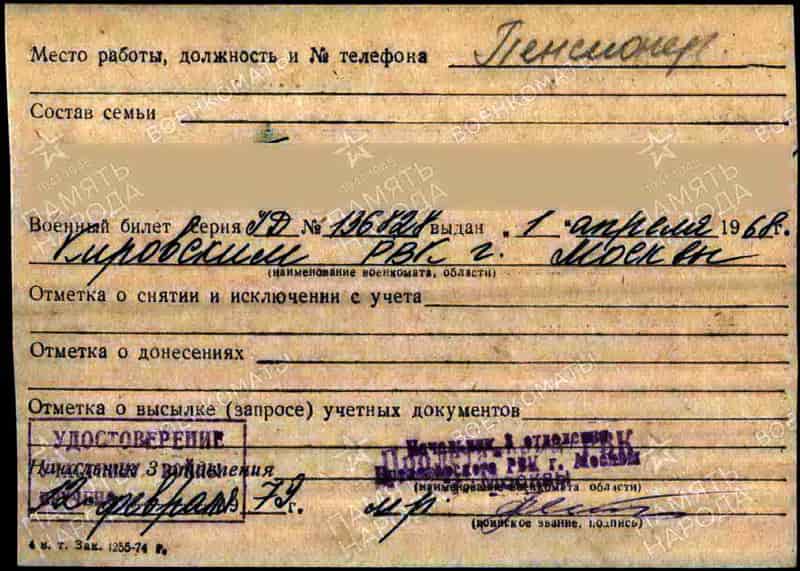 Место работы, должность и № телефона Пенсионер
Состав семьи
Военный билет серия ГД № 196828 выдан „1" апреля 1968г.
Кировским РВК г. Москвы
(наименование военкомата, области)
Отметка о снятии и исключении с учета
Отметка о донесениях
Отметка о высылке (запросе) учетных документов
УДОСТОВЕРЕНИЕ
Начальник 3 отделения
РВК г. Москвы
(наименование военкомата области)
12 февраля 79г.
(воинское звание, подпись)
4 в. т. Зак. 1255-74 г.
ПАМЯТЬ НАРОДА
ВОЕНКОМАТЫ